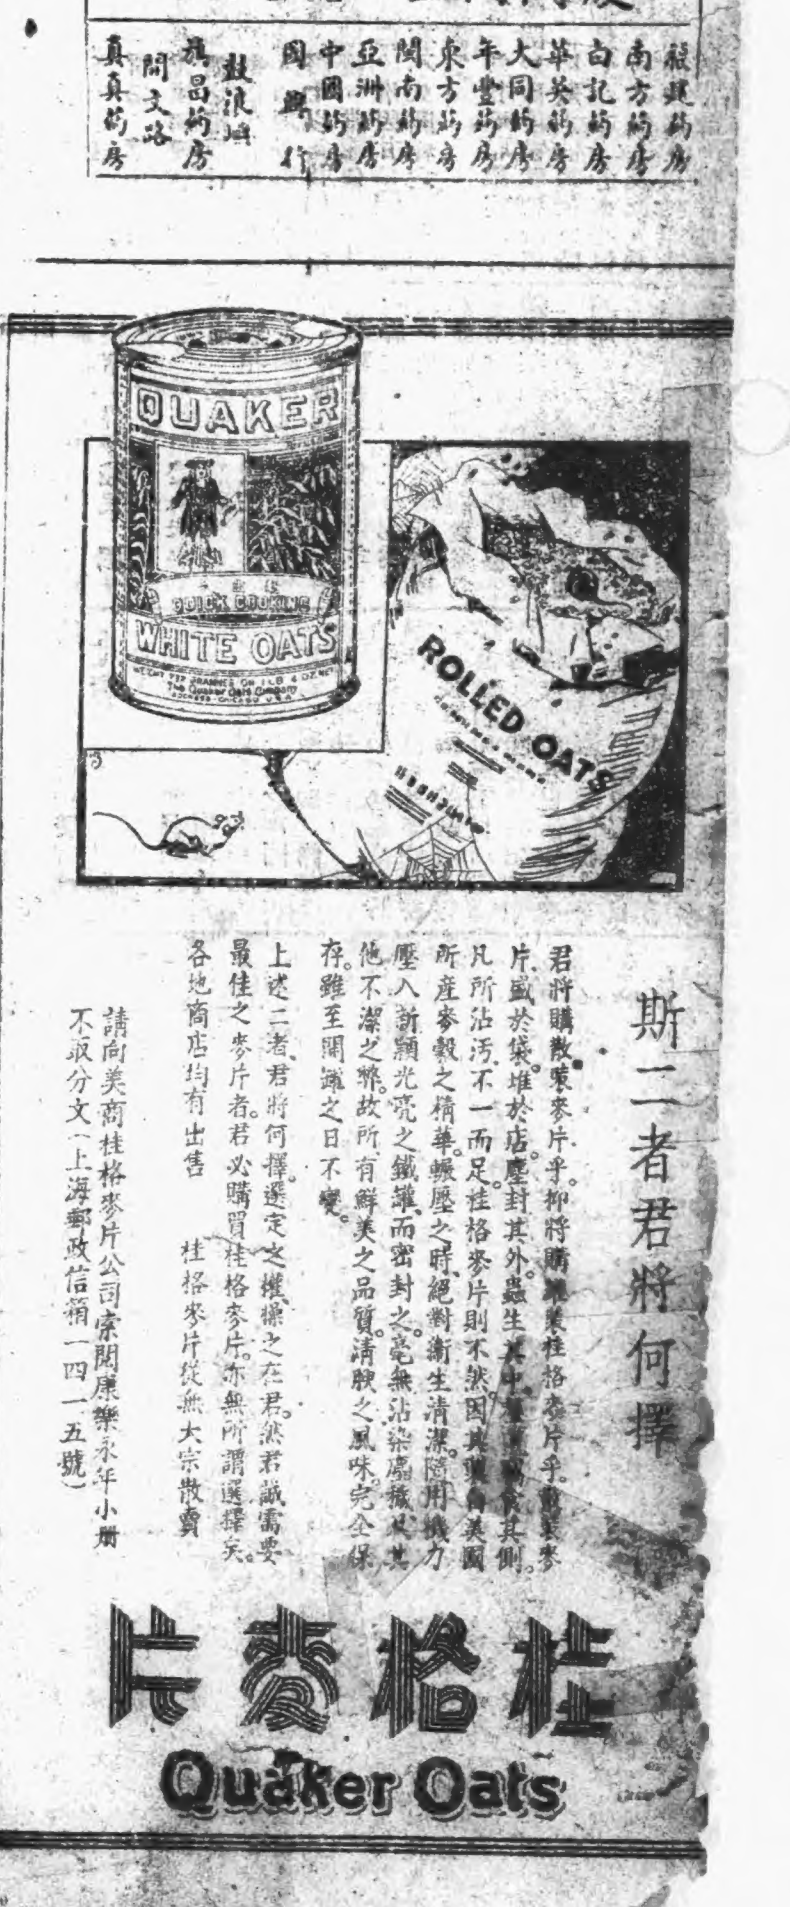 福建药房
南方药房
白記药房
華英药房
大同药房
年豐药房
東方药房
閩南药房
亞洲药房
中國药房
國興行
鼓浪嶼
龍昌药房
開文路
真真药房
QUAKER
QUICK COOKING
WHITE OATS
WEIGHT 567 GRAMMES OR 1 LB 4 OZ NET
The Quaker Oats Company
CHICAGO U.S.A.
ROLLED OATS
斯二者君將何擇
君將購散裝麥片乎。抑將購罐裝桂格麥片乎。散裝麥
片盛於袋。堆於店。塵封其外。蟲生其中。食其側。
凡所沾污。不一而足。桂格麥片則不然。因其製自美國
所產麥穀之精華。輾壓之時。絕對衛生清潔。隨用機力
壓入新穎光亮之鐵罐而密封之。毫無沾染塵穢及其
他不潔之弊。故所有鮮美之品質。清腴之風味。完全保
存。雖至開罐之日不變。
上述二者。君將何擇。選定之權。操之在君。然君誠需要
最佳之麥片者。君必購買桂格麥片。亦無所謂選擇矣。
各地商店均有出售 桂格麥片從無大宗散賣
請向美商桂格麥片公司索閱康樂永年小册
不取分文(上海郵政信箱一四一五號)
桂格麥片
Quaker Oats